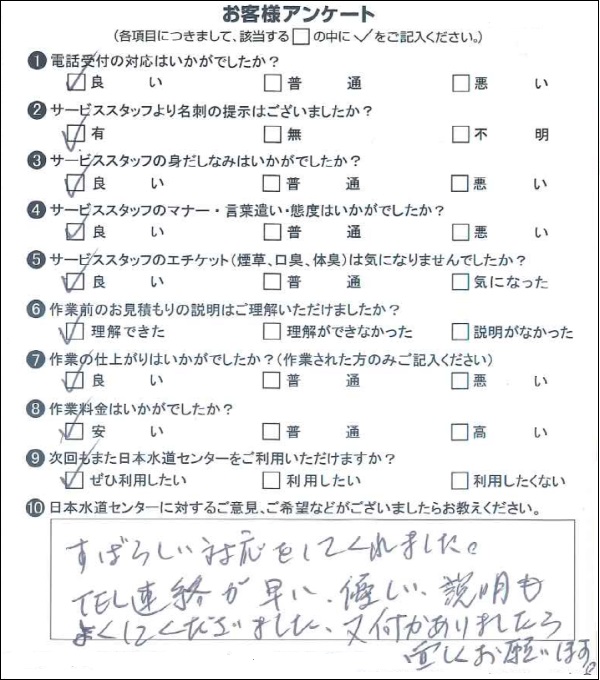 お客様アンケート
(各項目につきまして、該当する□の中に✓をご記入ください。)
❶電話受付の対応はいかがでしたか?
☑良い □普通 □悪い
❷サービススタッフより名刺の提示はございましたか?
☑有 □無 □不明
❸サービススタッフの身だしなみはいかがでしたか?
☑良い □普通 □悪い
❹サービススタッフのマナー・言葉遣い・態度はいかがでしたか?
☑良い □普通 □悪い
❺サービススタッフのエチケット(煙草、口臭、体臭)は気になりませんでしたか?
☑良い □普通 □気になった
❻作業前のお見積もりの説明はご理解いただけましたか?
☑理解できた □理解ができなかった □説明がなかった
❼作業の仕上がりはいかがでしたか?(作業された方のみご記入ください)
☑良い □普通 □悪い
❽作業料金はいかがでしたか?
☑安い □普通 □高い
❾次回もまた日本水道センターをご利用いただけますか?
☑ぜひ利用したい □利用したい □利用したくない
❿日本水道センターに対するご意見、ご希望などがございましたらお教えください。
すばらしい対応をしてくれました。
TEL連絡が早い、優しい、説明も
よくしてくださいました、又何かありましたら
宜しくお願いします。